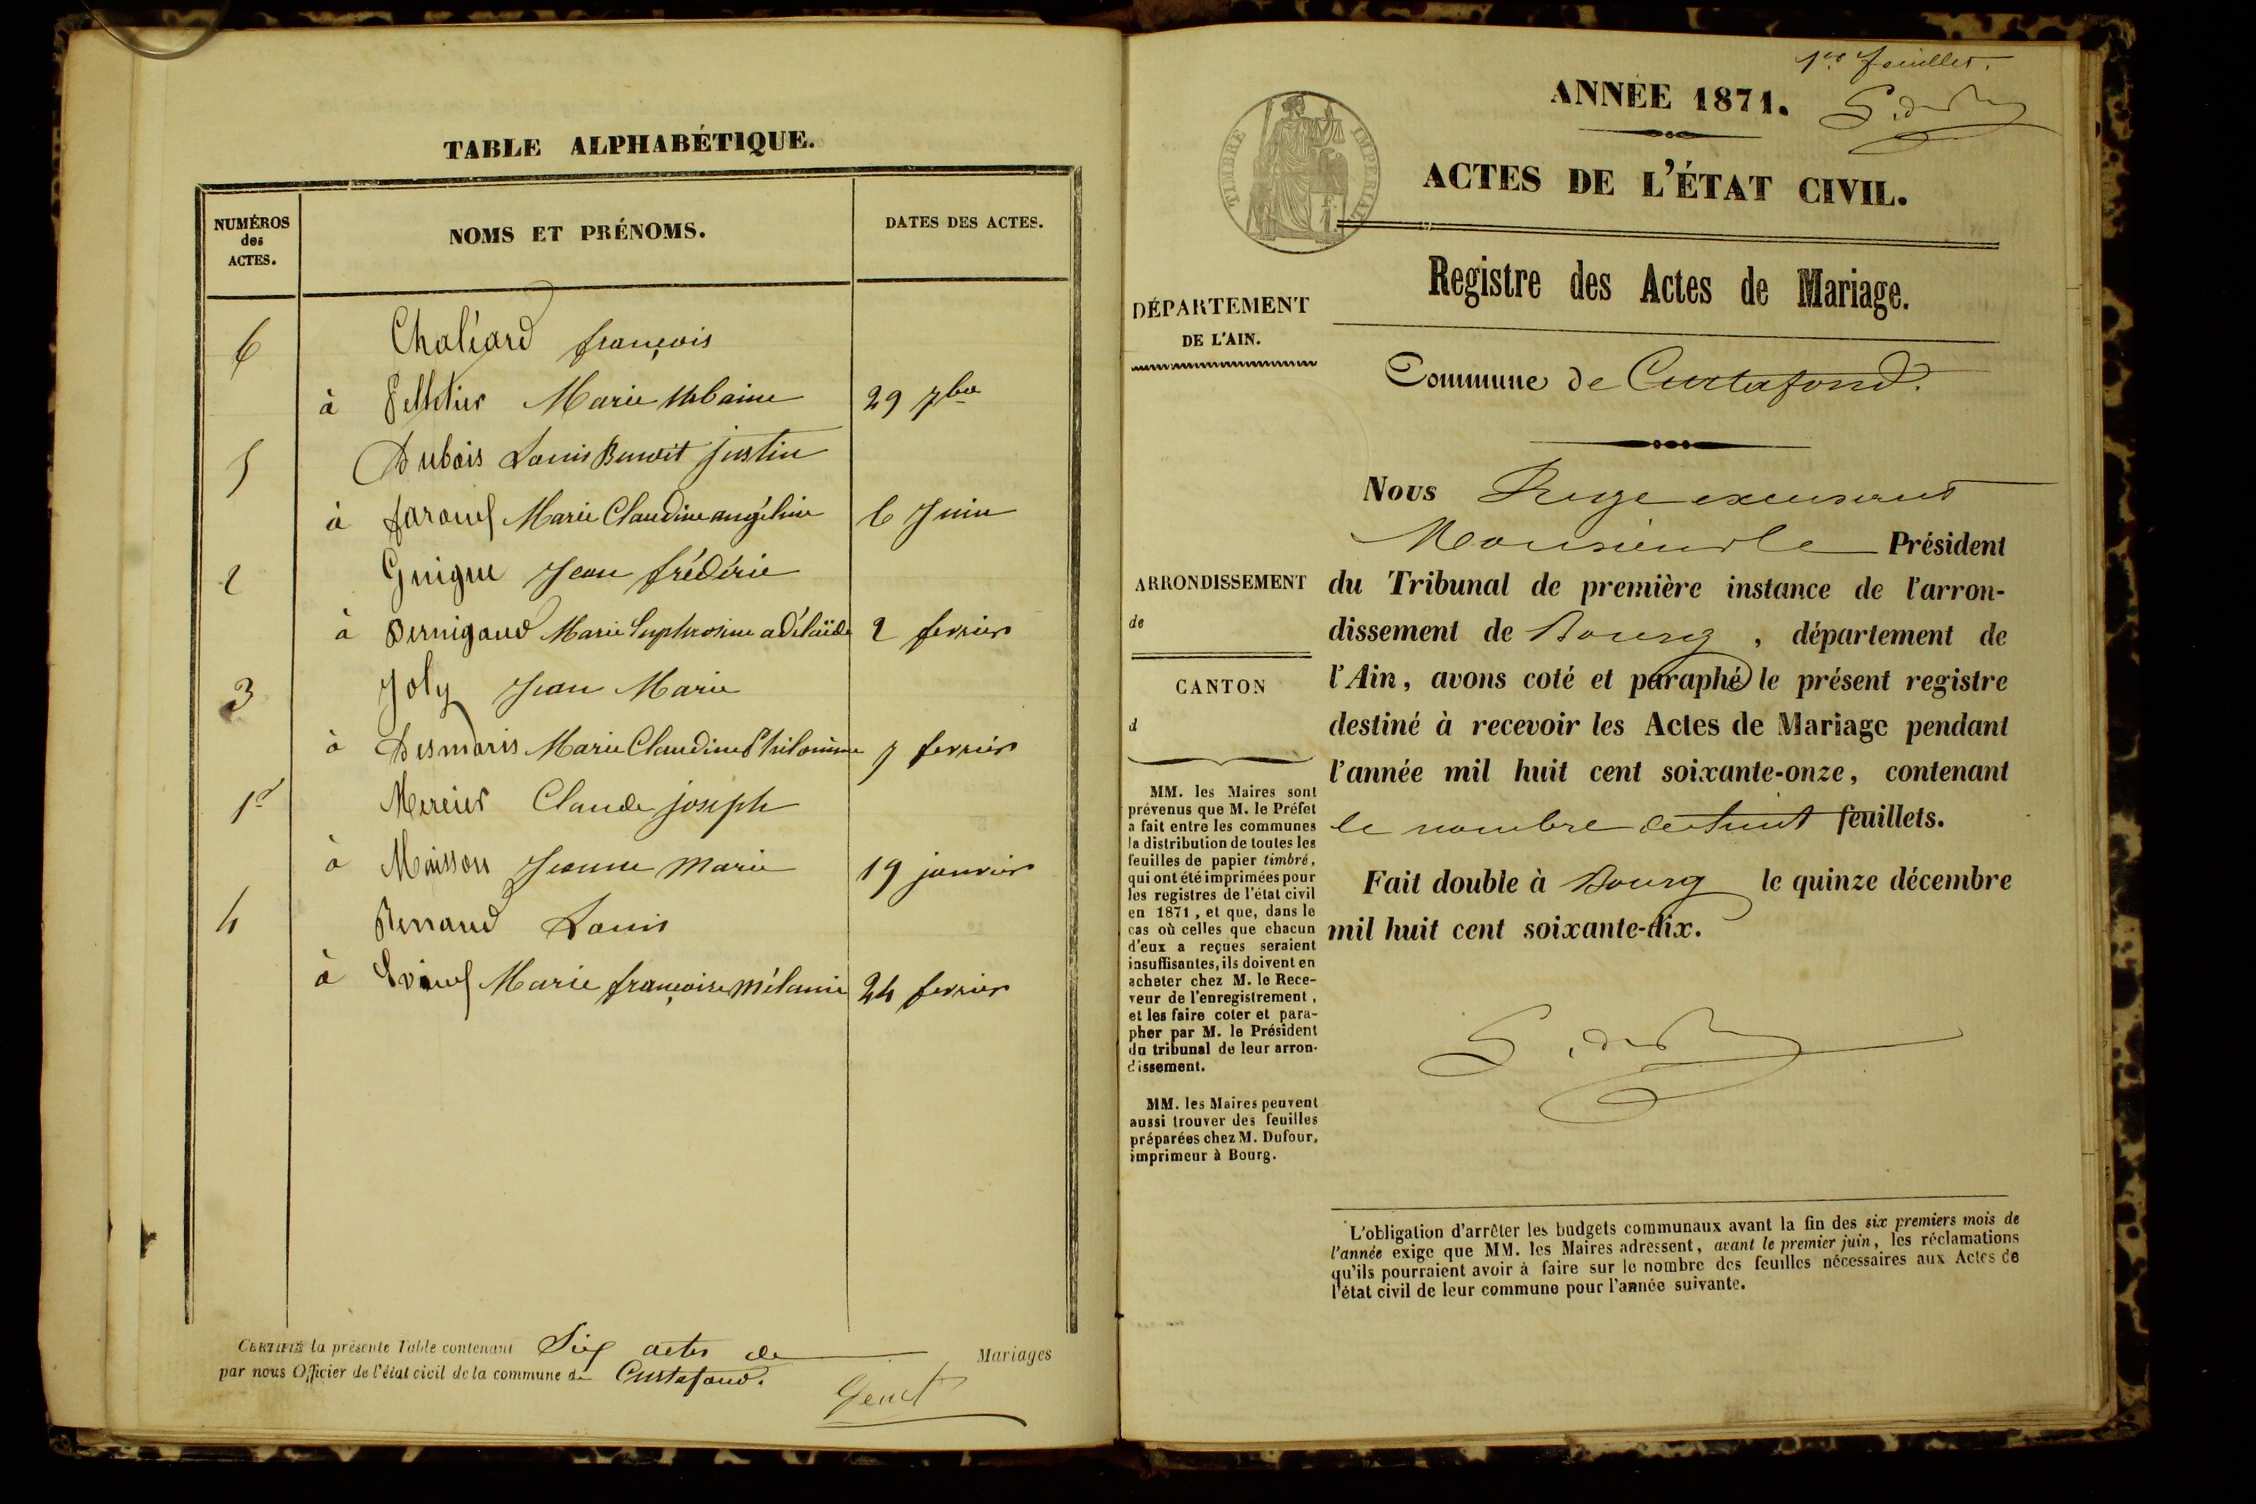 TABLE ALPHABÉTIQUE.
NUMÉROS
des
ACTES.
NOMS ET PRÉNOMS.
DATES DES ACTES.
6 Chaléard françois
à Pelletier Marie Urbaine 29 7bre
5 Dubois Louis Benoit Justin
à Marie Claudine angéline 6 Juin
2 Guigue Jean frédéric
à Bernigaud Marie Euphrosine adélaïde 2 fevrier
3 Joly Jean Marie
à Desmaris Marie Claudine Philomène 7 fevrier
1er Mercier Claude joseph
à Moisson Jeanne Marie 19 janvier
4 Renaud Louis
à Marie françoise Mélanie 24 fevrier
CERTIFIÉ la présente Table contenant Six actes de Mariages
par nous Officier de l'état civil de la commune de Curtafond.
1er feuillet.
ANNÉE 1871.
TIMBRE IMPÉRIAL
ACTES DE L'ÉTAT CIVIL.
Registre des Actes de Mariage.
DÉPARTEMENT
DE L'AIN.
Commune de Curtafond.
Nous Juge
Monsieur le Président
du Tribunal de première instance de l'arron-
dissement de Bourg, département de
l'Ain, avons coté et paraphé le présent registre
destiné à recevoir les Actes de Mariage pendant
l'année mil huit cent soixante-onze, contenant
le nombre de huit feuillets.
Fait double à Bourg le quinze décembre
mil huit cent soixante-dix.
ARRONDISSEMENT
de
CANTON
d
MM. les Maires sont
prévenus que M. le Préfet
a fait entre les communes
la distribution de toutes les
feuilles de papier timbré,
qui ont été imprimées pour
les registres de l'état civil
en 1871, et que, dans le
cas où celles que chacun
d'eux a reçues seraient
insuffisantes, ils doivent en
acheter chez M. le Rece-
veur de l'enregistrement,
et les faire coter et para-
pher par M. le Président
du tribunal de leur arron-
dissement.
MM. les Maires peuvent
aussi trouver des feuilles
préparées chez M. Dufour,
imprimeur à Bourg.
L'obligation d'arrêter les budgets communaux avant la fin des six premiers mois de
l'année exige que MM. les Maires adressent, avant le premier juin, les réclamations
qu'ils pourraient avoir à faire sur le nombre des feuilles nécessaires aux Actes de
l'état civil de leur commune pour l'année suivante.